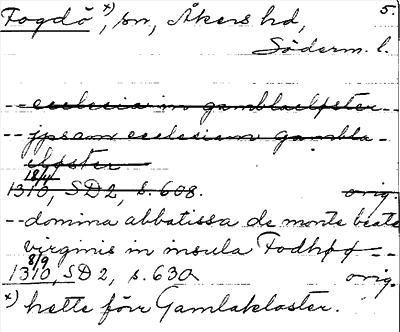 Fogdö x), sn, Åkers hd, 5.
Söderm. l.
-- ecclesia in gamblaclpster --
-- jpsam ecclesiam gambla-
clpster
18/4
1310, SD 2, s. 608. orig.
-- domina abbatissa de monte beate
virginis in insula Fodhøø --
8/9
1310, SD 2, s. 630 orig.
x) hette förr Gamlakloster.